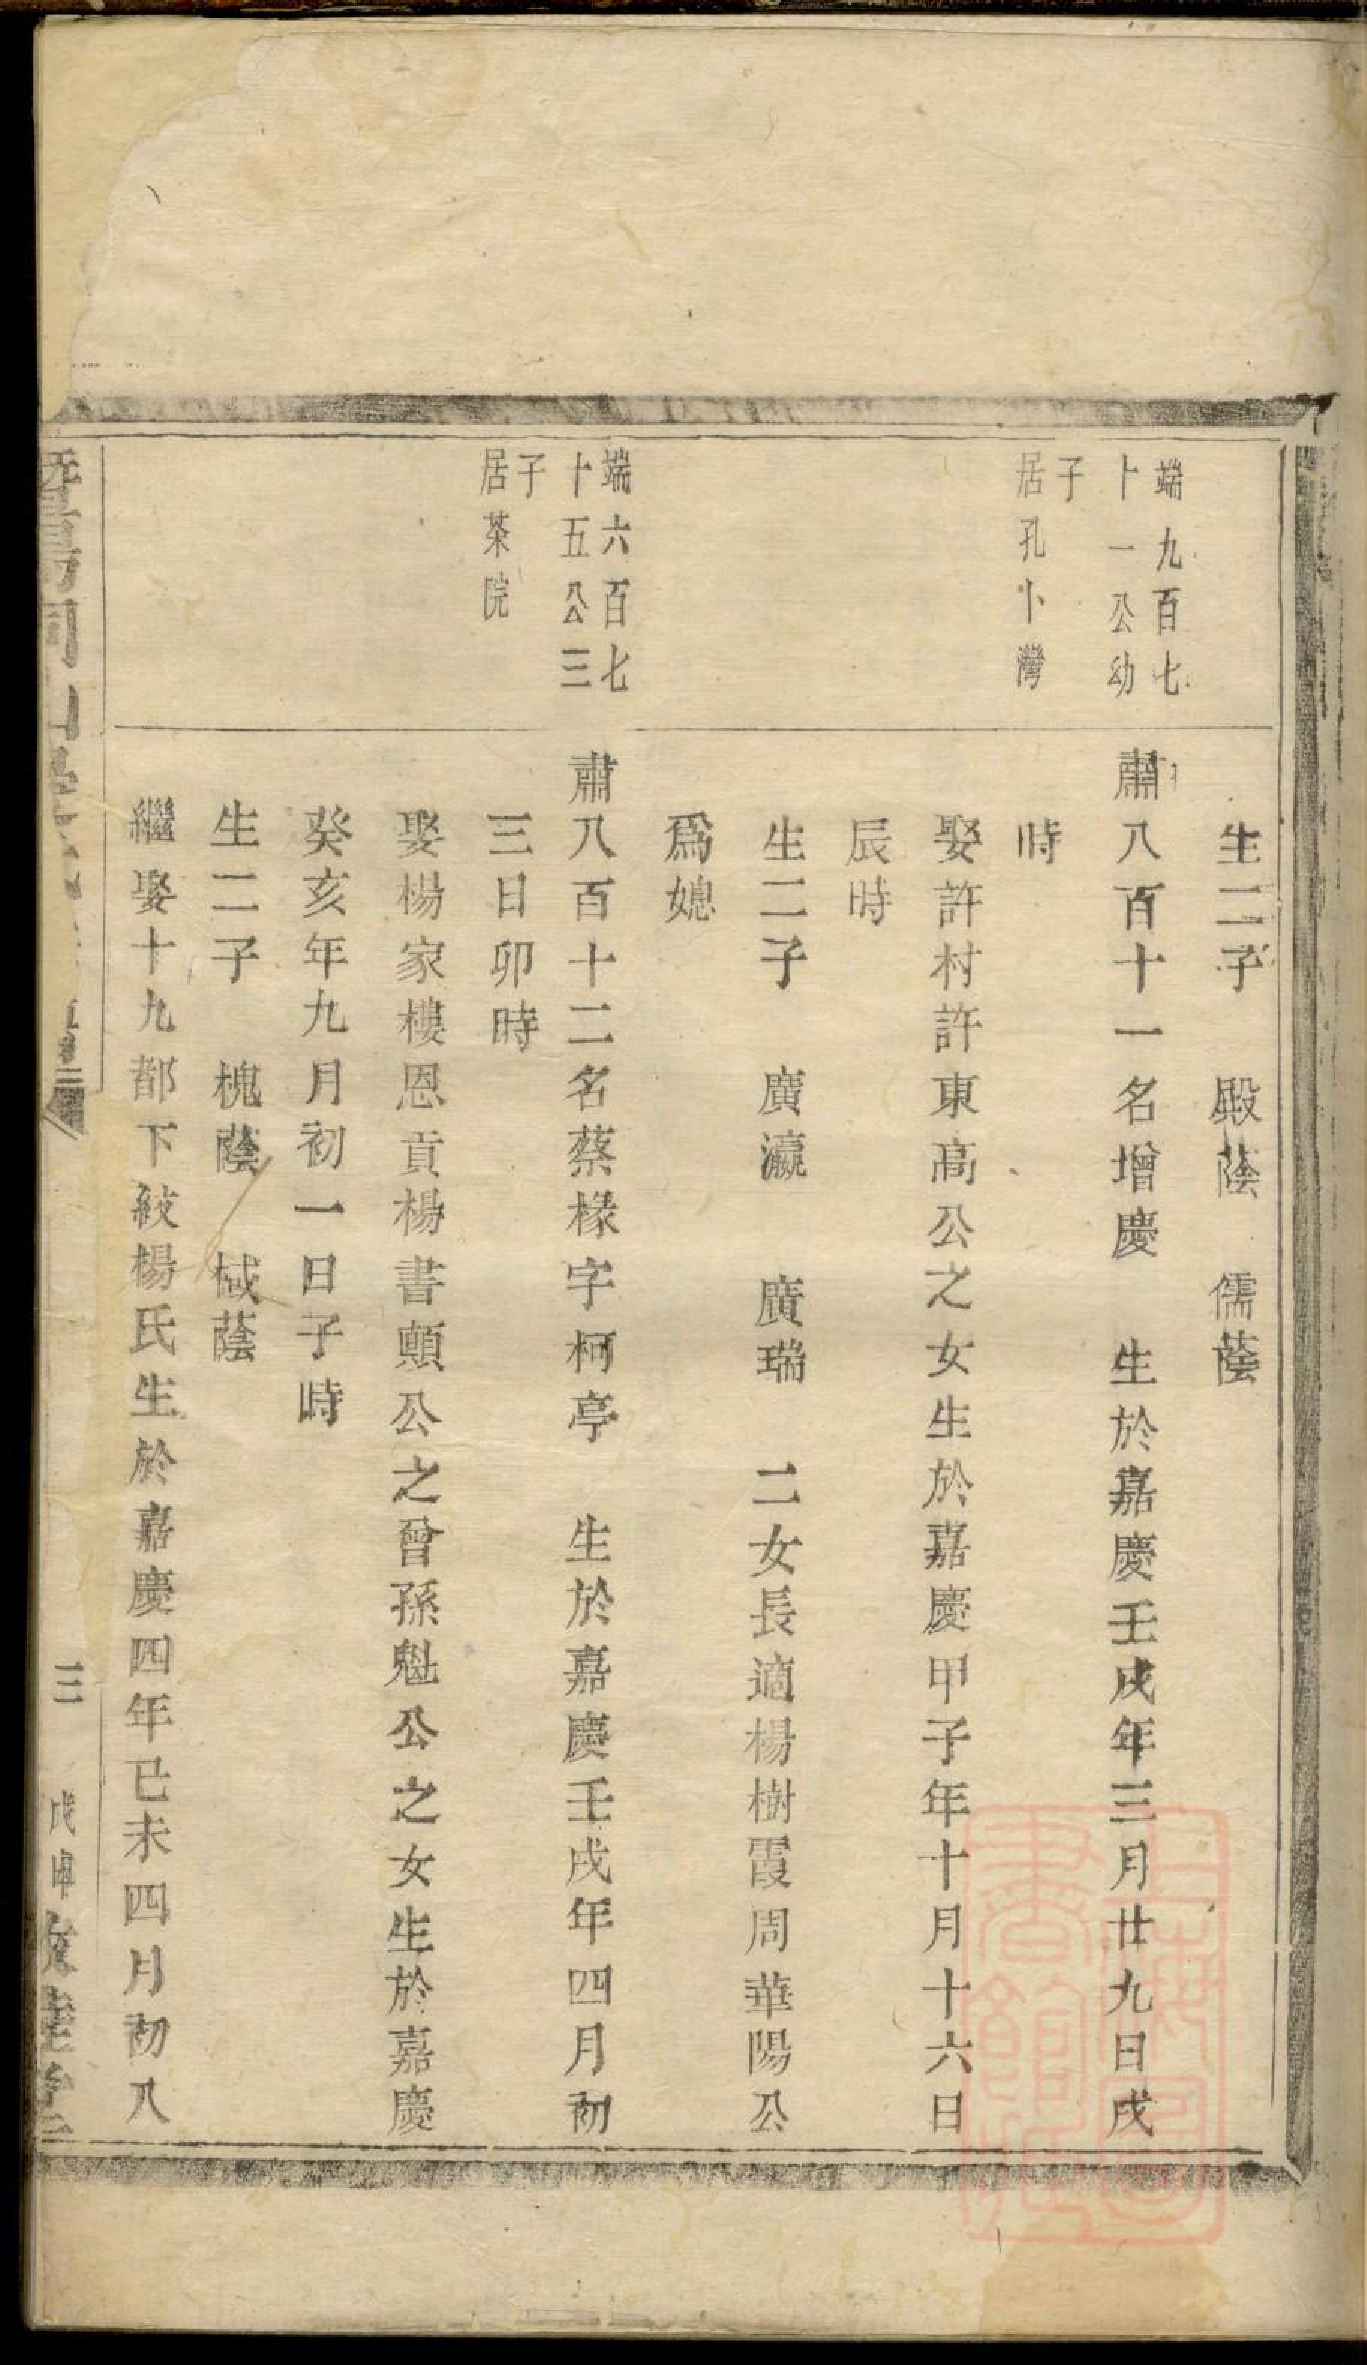 生二子　殿蔭　儒蔭
端九百七
十一公幼
子
居孔卜灣
肅八百十一名增慶　生於嘉慶壬戌年三月廿九日戌
時
娶許村許東高公之女生於嘉慶甲子年十月十六日
辰時
生二子　廣瀛　廣瑞　二女長適楊樹霞周華陽公
爲媳
端六百七
十五公三
子
居茶院
肅八百十二名蔡椽字柯亭　生於嘉慶壬戌年四月初
三日卯時
娶楊家樓恩貢楊書顛公之曾孫魁公之女生於嘉慶
癸亥年九月初一日子時
生二子　槐蔭　棫蔭
繼娶十九都下紋楊氏生於嘉慶四年已未四月初八
三
戊申
上海圖
書館藏